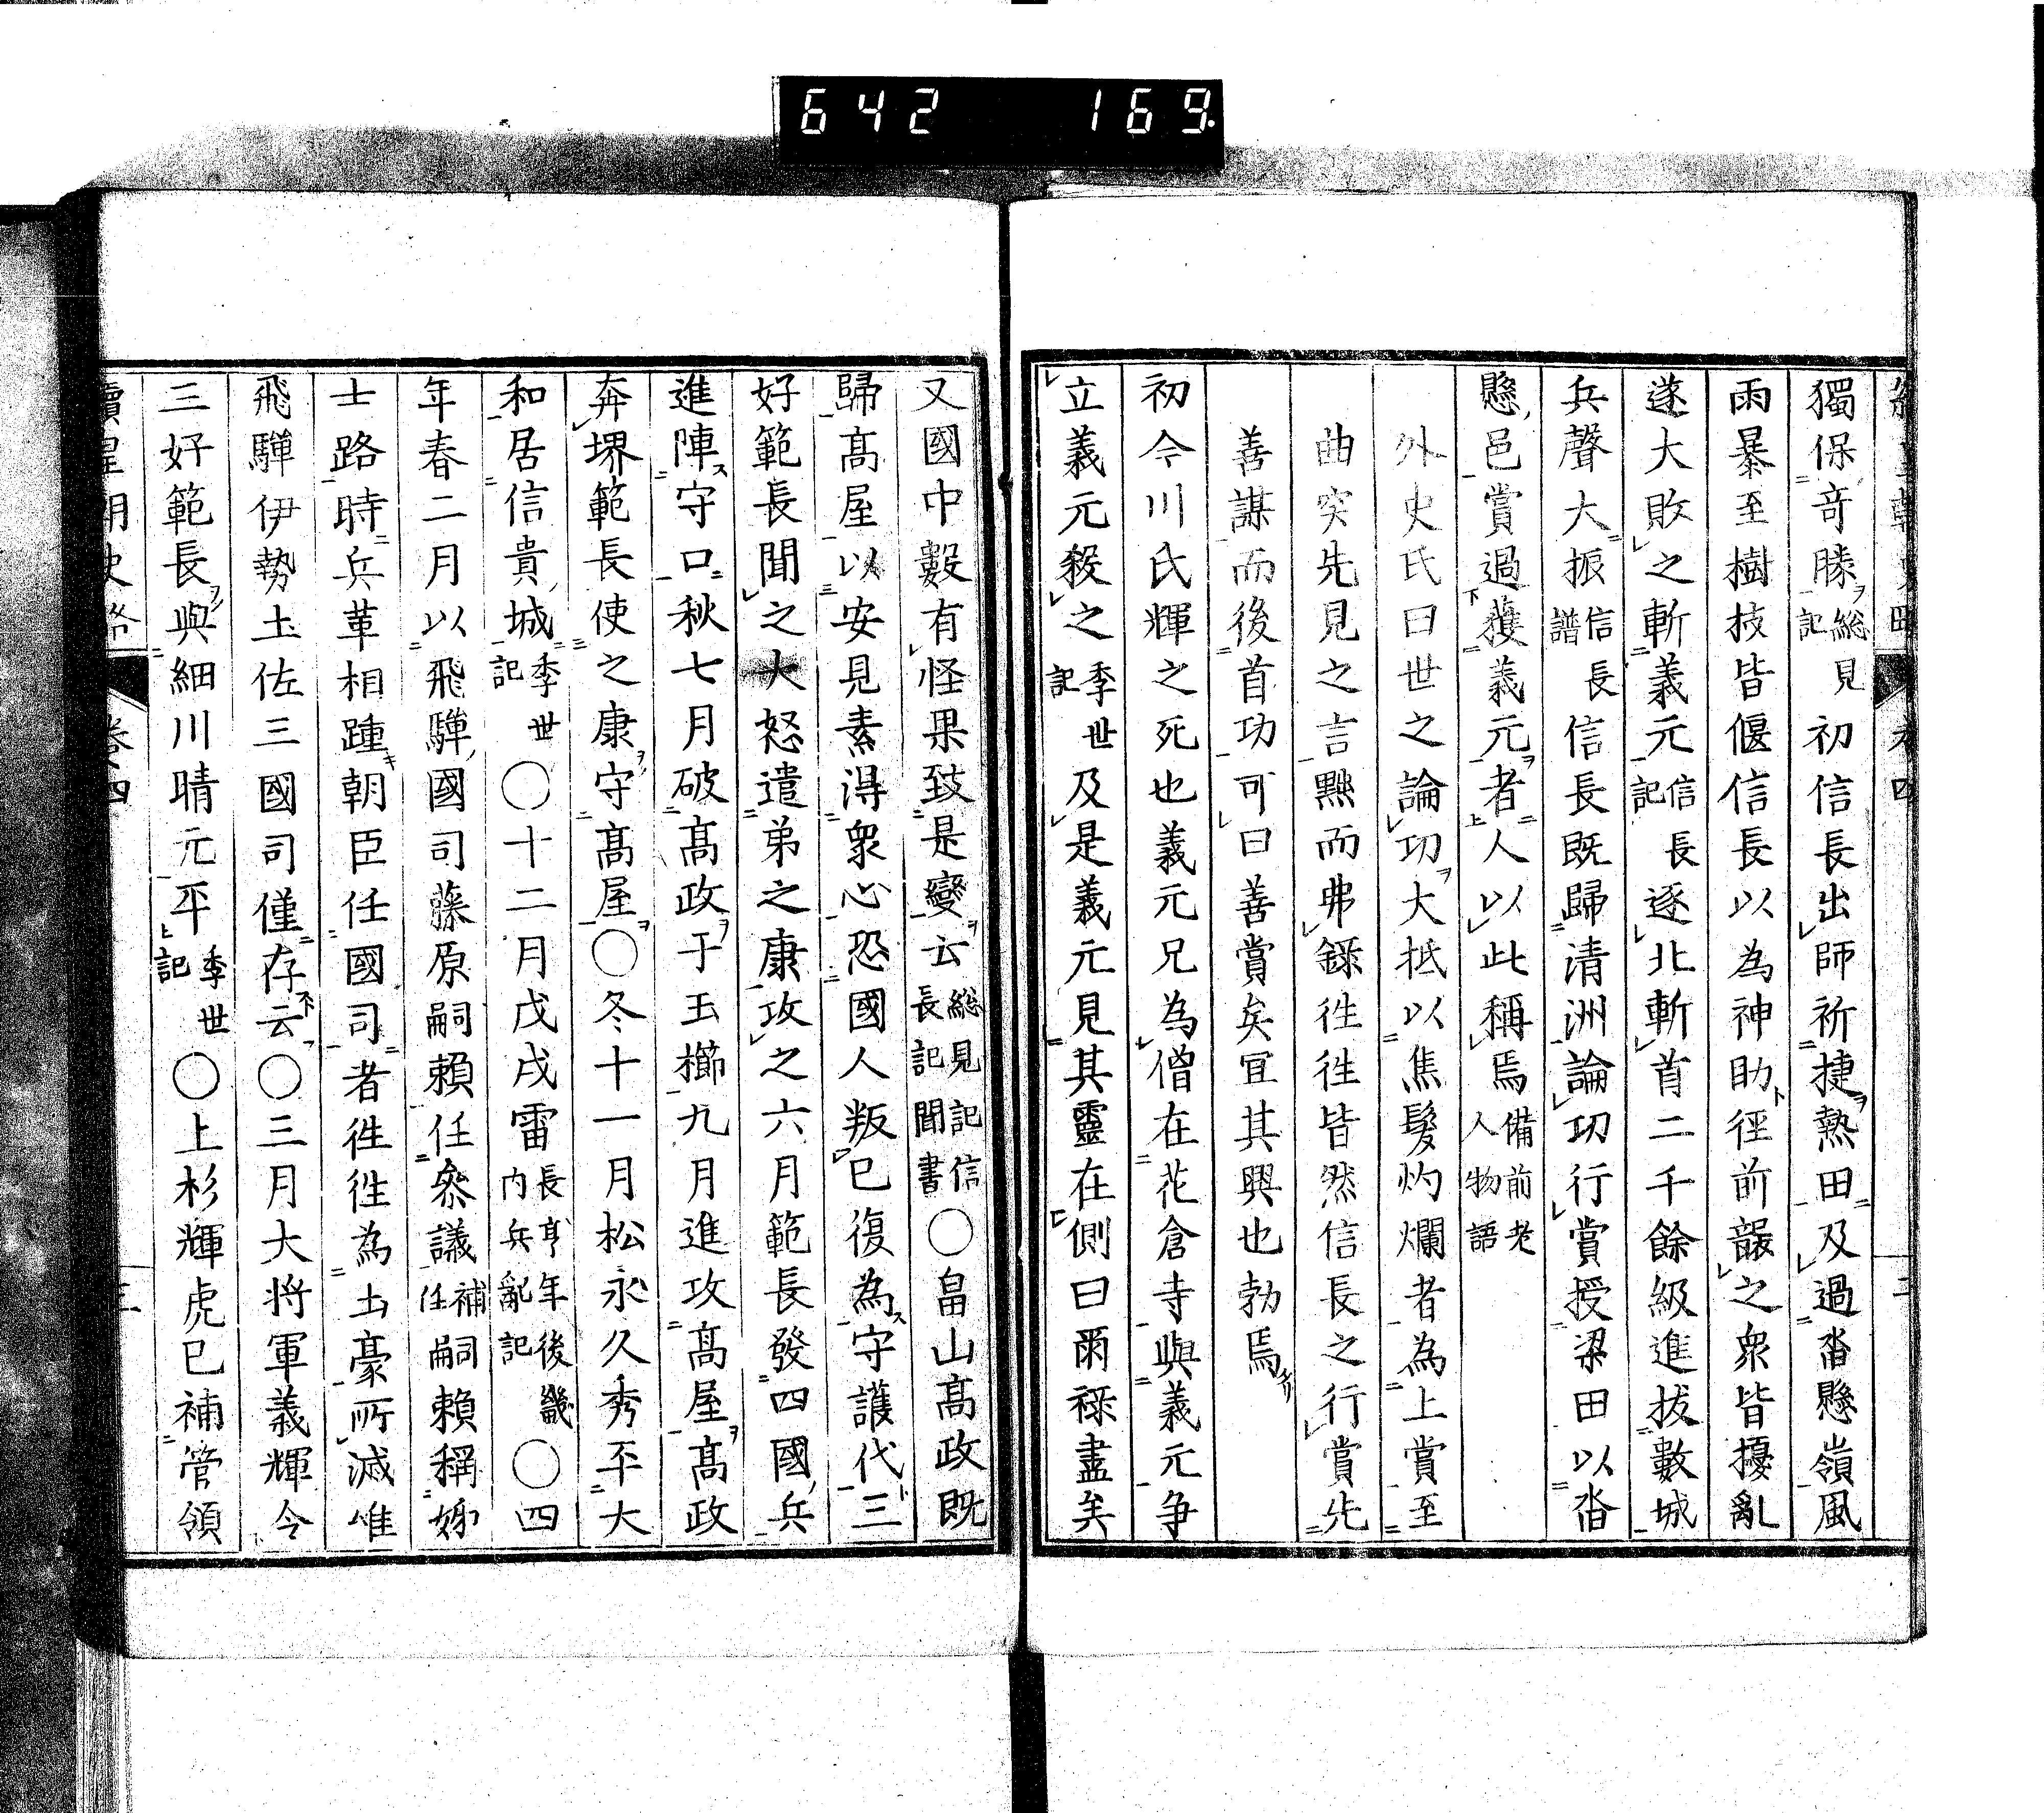 642 169.
獨保奇勝総見記初信長出師祈捷熱田及過沓懸嶺風
雨暴至樹枝皆偃信長以為神助徑前嚴之衆皆擾亂
遂大敗之斬義元信長記逐北斬首二千餘級進拔數城
兵聲大振信長譜信長既歸清洲論功行賞授梁田以沓
懸邑賞過獲義元者人以此稱焉備前老人物語
外史氏曰世之論功大抵以焦髮灼爛者為上賞至
曲突先見之言黙而弗錄徃徃皆然信長之行賞先
善謀而後首功可曰善賞矣宜其興也勃焉
初今川氏輝之死也義元兄為僧在花倉寺與義元争
立義元殺之季世記及是義元見其靈在側曰爾祿盡矣
又國中數有怪果致是變云総見記信長記聞書〇畠山高政既
歸髙屋以安見素得衆心恐國人叛已復為守護代三
好範長聞之大怒遣弟之康攻之六月範長發四國兵
進陣守口秋七月破髙政于玉櫛九月進攻髙屋髙政
奔堺範長使之康守髙屋〇冬十一月松永久秀平大
和居信貴城季世記〇十二月戊戌雷長享年後畿内兵亂記〇四
年春二月以飛騨國司藤原嗣頼任參議補任嗣頼稱姉
士路時兵革相踵朝臣任國司者徃徃為土豪所滅唯
飛騨伊勢土佐三國司僅存云〇三月大将軍義輝令
三好範長與細川晴元平季世記〇上杉輝虎已補管領
續皇朝史畧 卷四 三